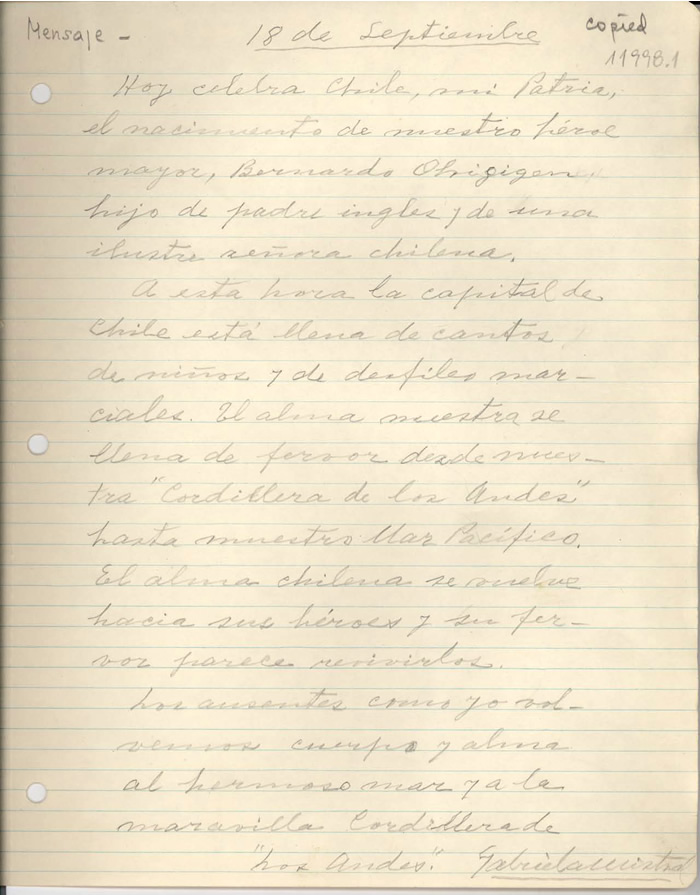 Mensaje -
18 de Septiembre
copied
11998.1
Hoy celebra Chile, mi Patria,
el nacimiento de nuestro héroe
mayor, Bernardo Ohigigen,
hijo de padre ingles y de una
ilustre señora chilena.
A esta hora la capital de
Chile está llena de cantos
de niños y de desfiles mar-
ciales. El alma nuestra se
llena de fervor desde nues-
tra "Cordillera de los Andes"
hasta nuestro Mar Pacífico.
El alma chilena se vuelve
hacia sus héroes y su fer-
vor parece revivirlos.
Los ausentes como yo vol-
vemos cuerpo y alma
al hermoso mar y a la
maravilla Cordillera de
"Los Andes". Gabriela Mistral